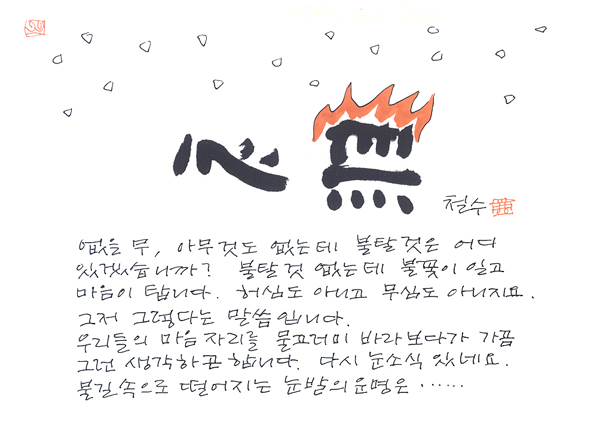 無心
철수
없을 무, 아무것도 없는데 불탈 것은 어디
있겠습니까? 불탈 것 없는데 불꽃이 일고
마음이 탑니다. 허심도 아니고 무심도 아니지요.
그저 그렇다는 말씀입니다.
우리들의 마음자리를 물끄러미 바라보다가 가끔
그런 생각하곤 합니다. 다시 눈소식 있네요.
불길속으로 떨어지는 눈발의 운명은 ......